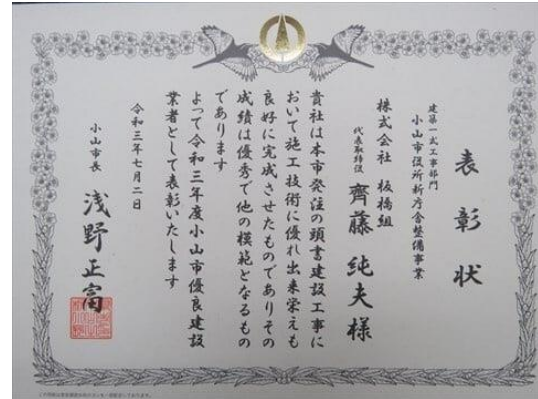 表彰状
建築一式工事部門
小山市役所新庁舎整備事業
株式会社 板橋組
代表取締役 齊藤純夫様
貴社は本市発注の頭書建設工事に
おいて施工技術に優れ出来栄えも
良好に完成させたものでありその
成績は優秀で他の模範となるもの
であります
よって令和三年度小山市優良建設
業者として表彰いたします
令和三年七月二日
小山市長 浅野正富